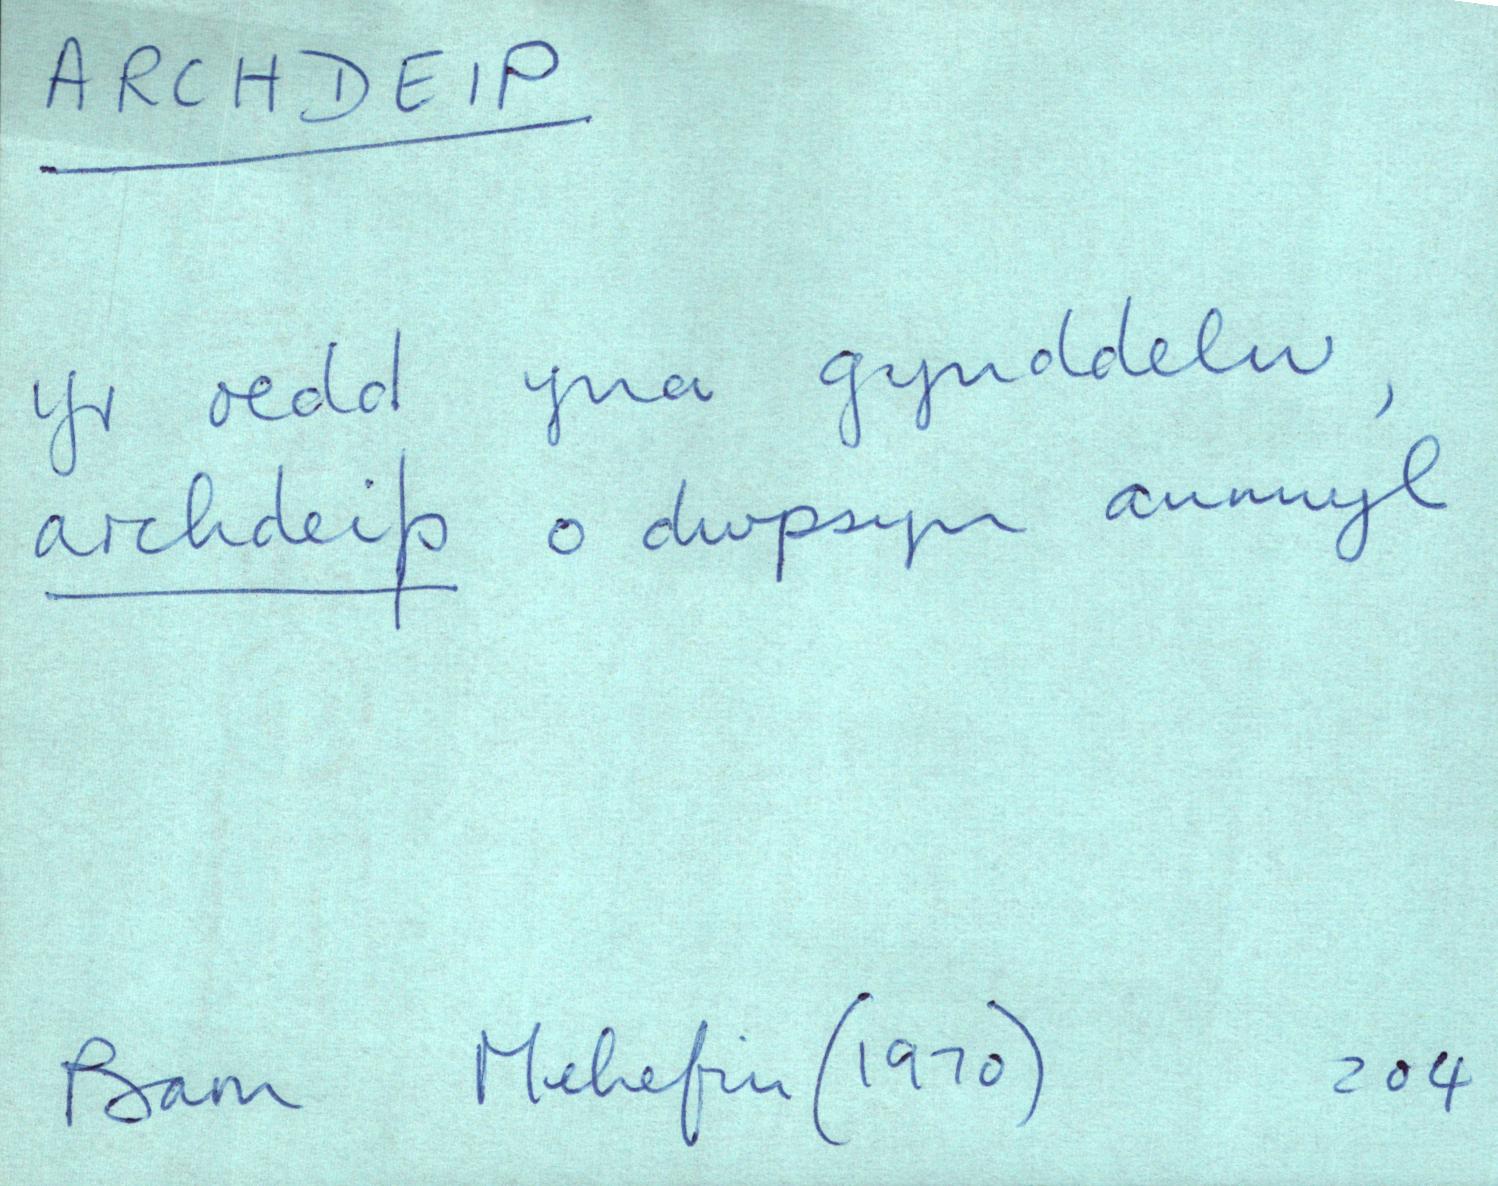 ARCHDEIP
Yr oedd yna gynddelw,
archdeip o dwpsyn annwyl
Barn Mehefin (1970) 204